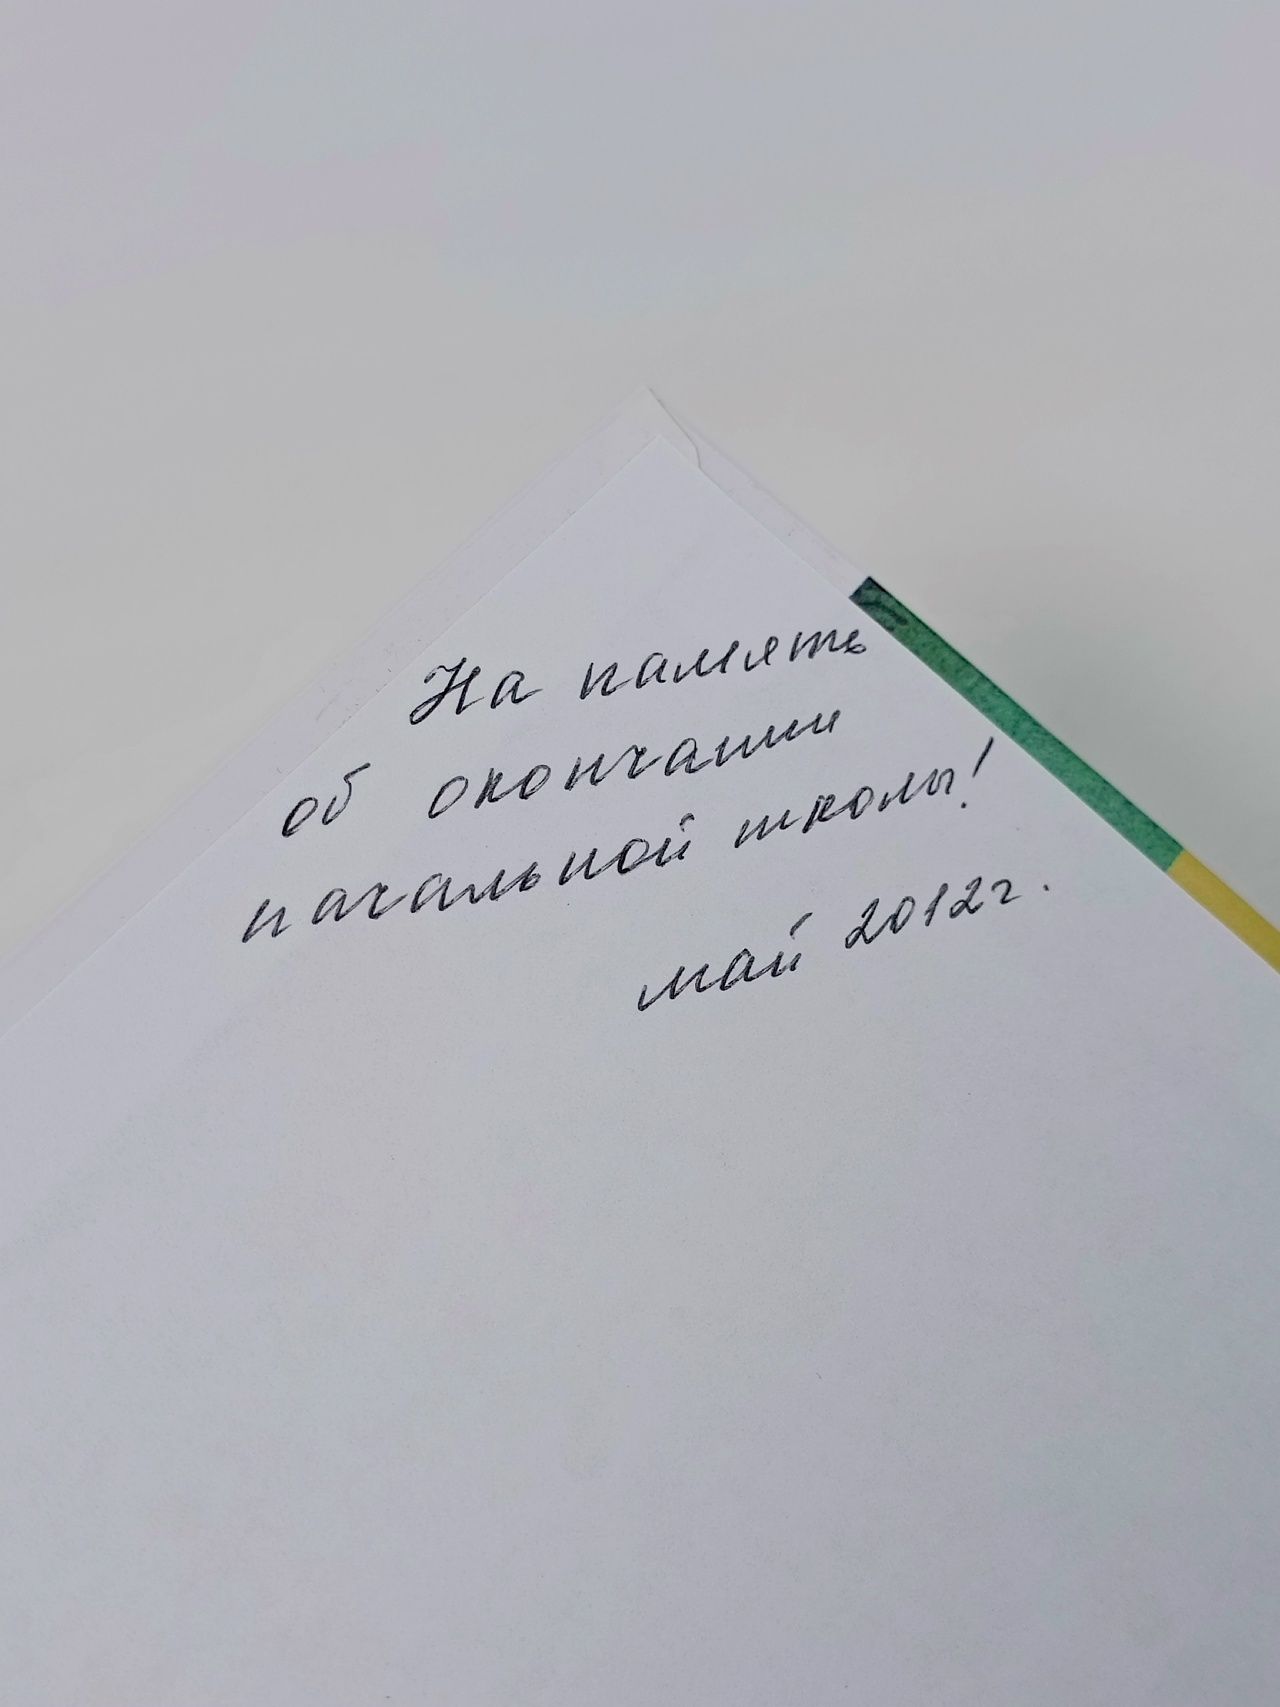 На память
об окончании
начальной школы!
май 2012г.